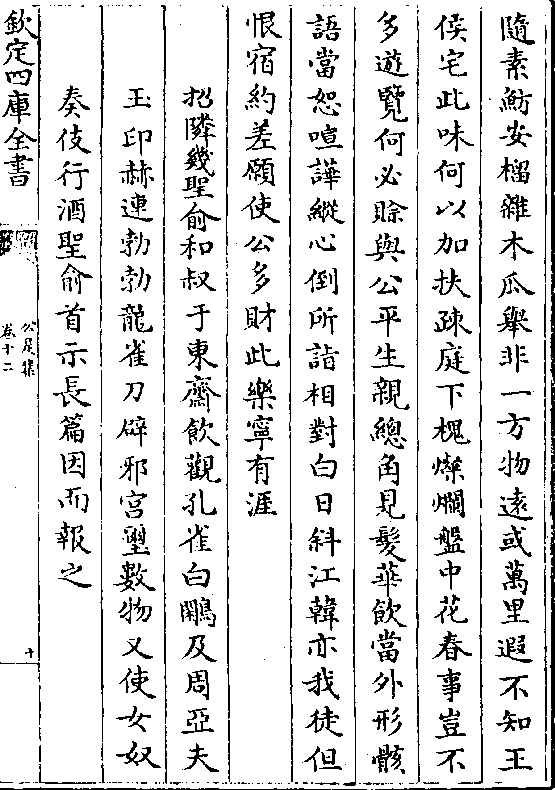 隨素魴安榴雜木瓜舉非一方物遠或萬里遐不知王
侯宅此味何以加扶疎庭下槐爛盤中花春事豈不
多遊覽何必賒與公平生親總角見髮華飲當外形骸
語當恕喧譁縱心倒所詣相對白日斜江韓亦我徒但
恨宿約差願使公多財此樂寧有涯
招隣幾聖俞和叔于東齋飲觀孔雀白鷴及周亞夫
玉印赫連勃勃龍雀刀辟邪宮璽數物又使女奴
奏伎行酒聖俞首示長篇因而報之
欽定四庫全書
公是集
卷十二
十